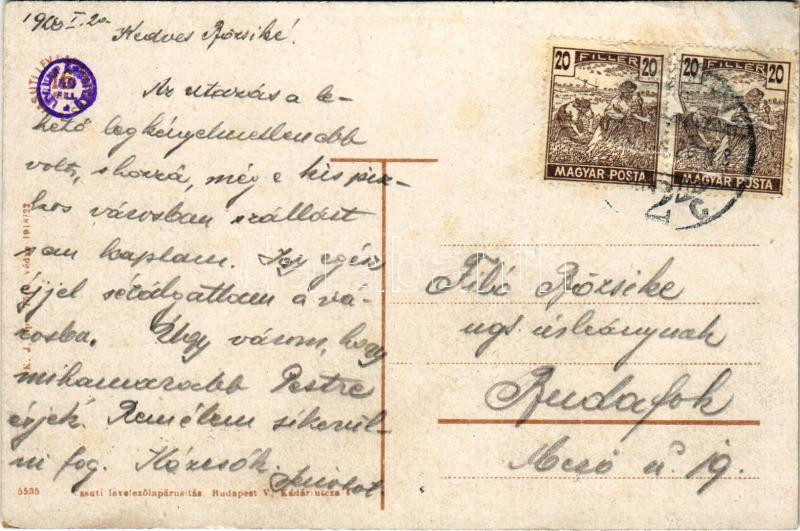 1920 I. 20
Kedves Rózsiké!
Az utazás a le-
hető legkényelmetlenebb
volt, s hozzá, még e kis pisz-
kos városban szállást
sem kaptam. Így egész
éjjel sétálgattam a vá-
rosba. Úgy várom, hogy
mihamarabb Pestre
érjek. Remélem sikerül-
ni fog. Kézcsók
20 FILLER 20
MAGYAR POSTA
20 FILLER 20
MAGYAR POSTA
Filó Rózsike
ugs. úrleánynak
Budafok
Mező u. 19.
darabanth.com
védve 1918/22
5535
suti levelezőlapárusítás. Budapest V. Kádár utcza